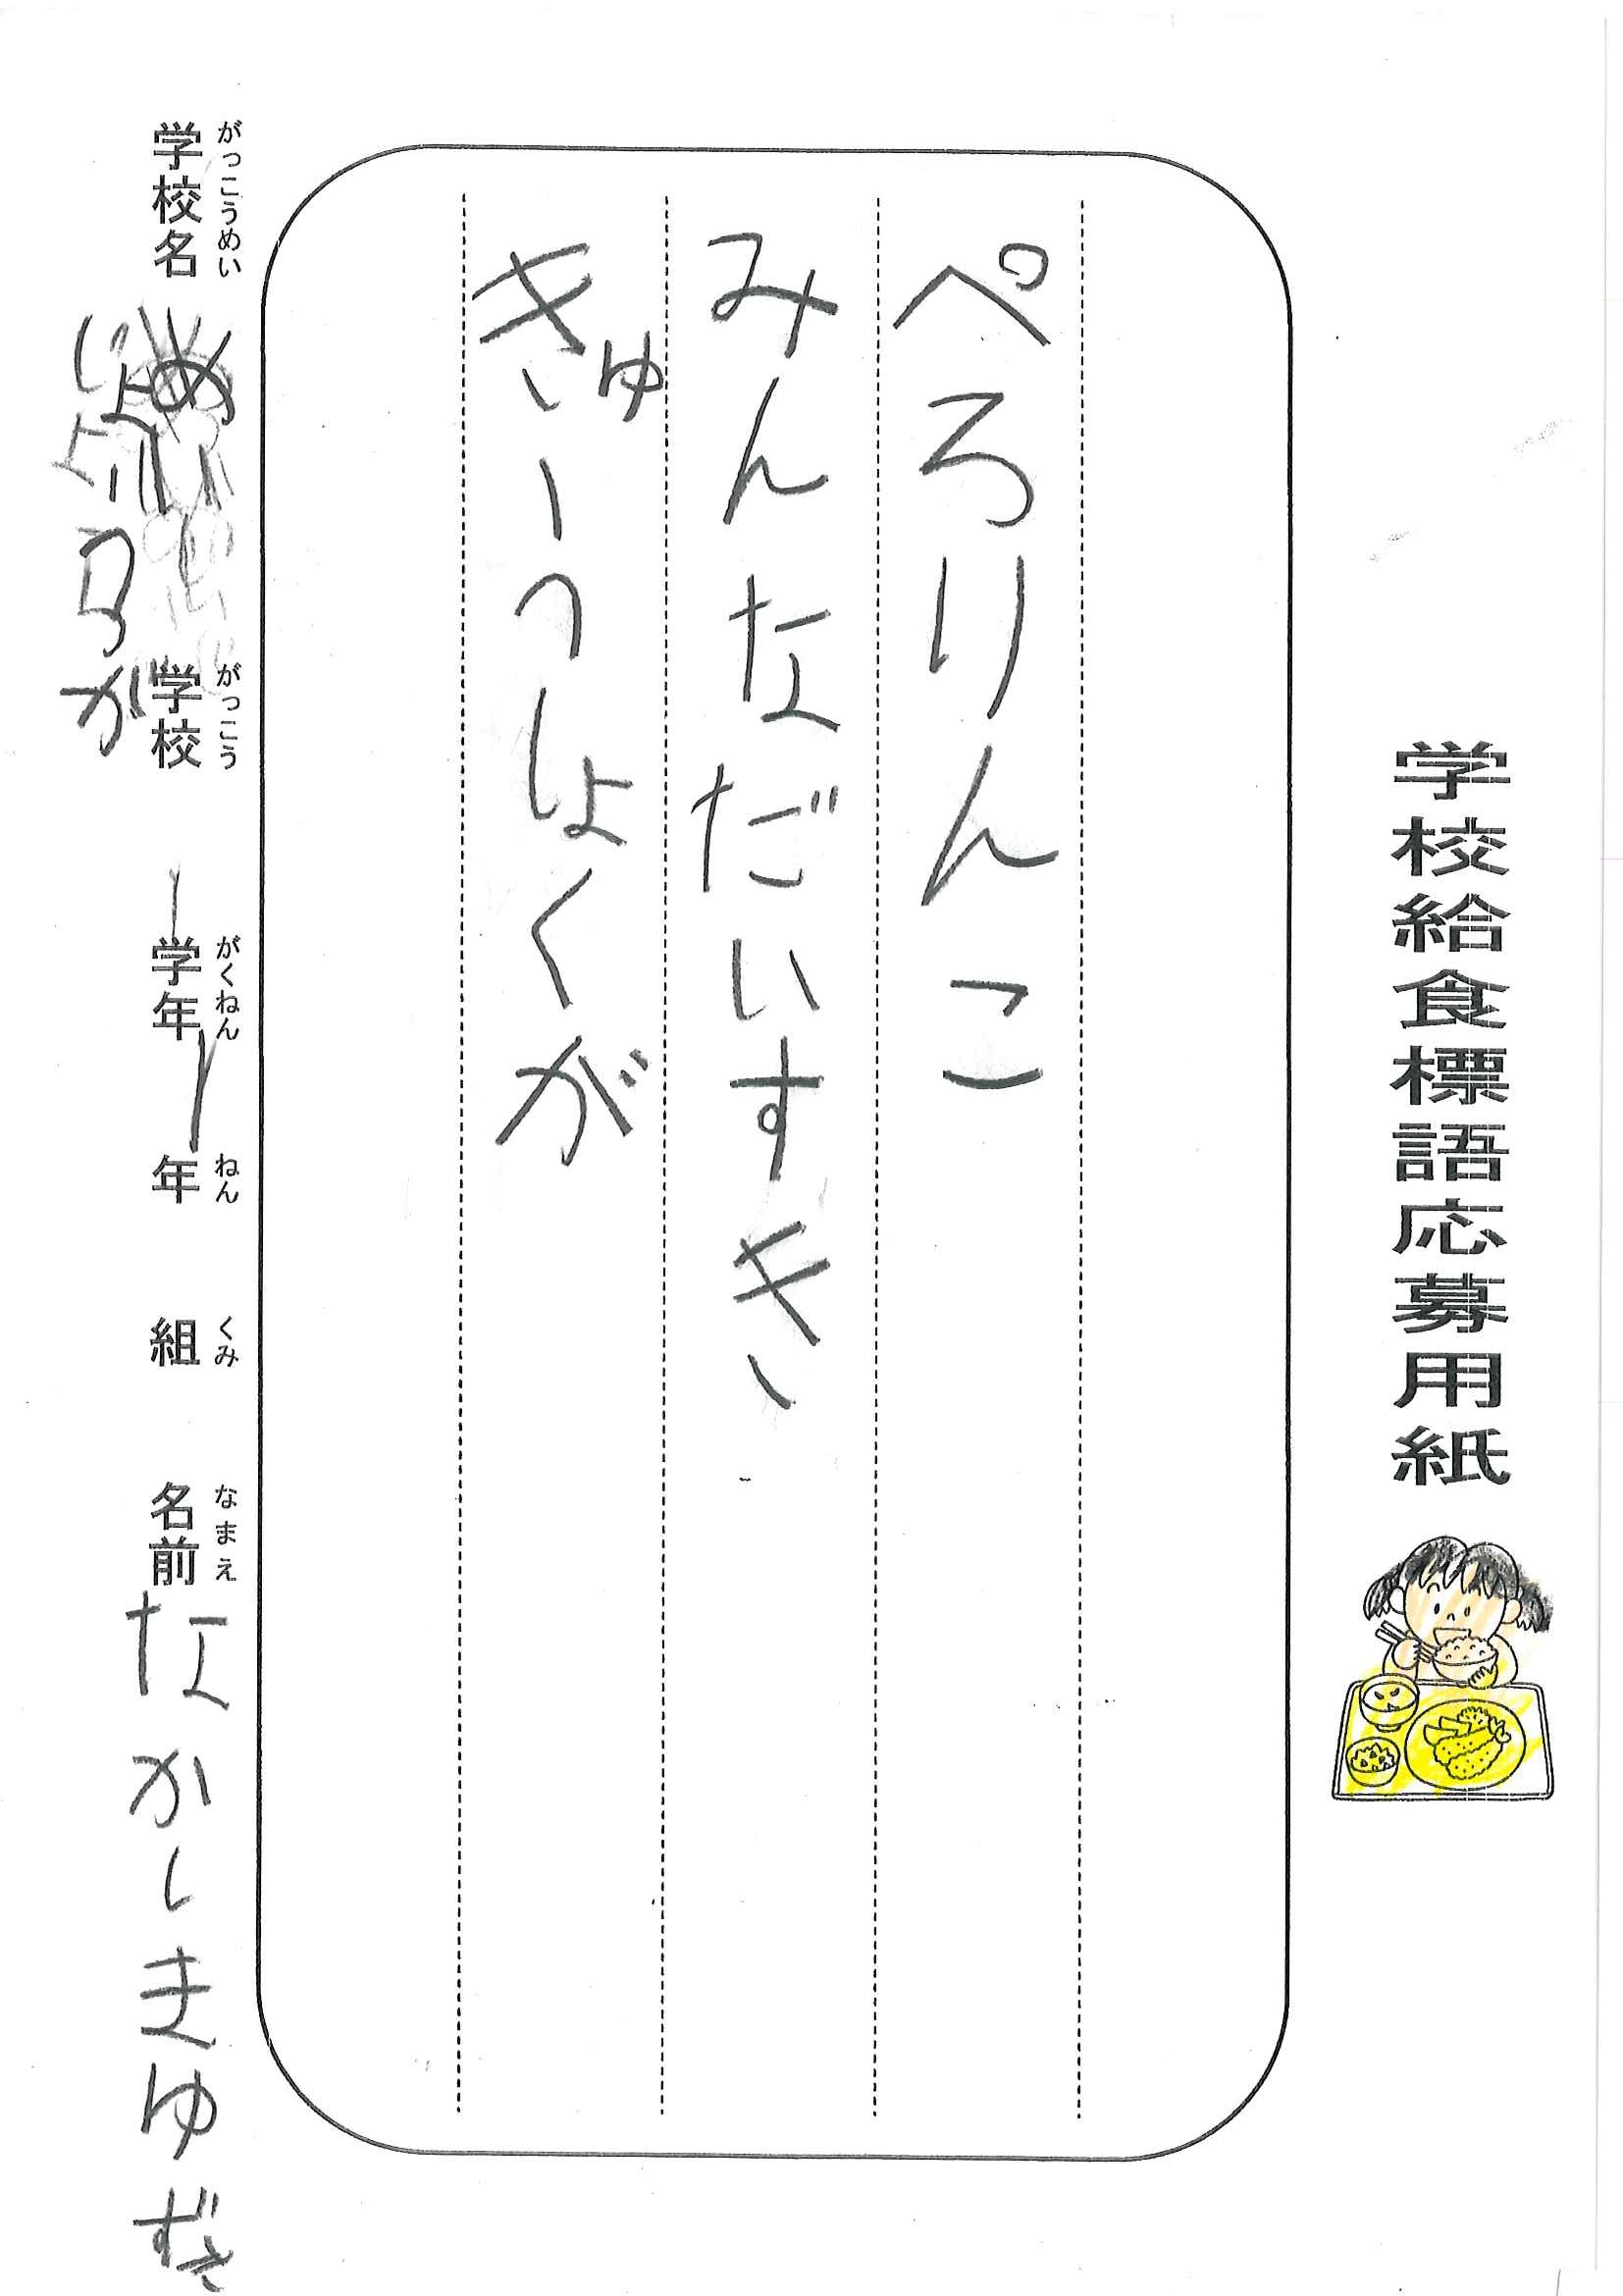 学校給食標語応募用紙
ぺろりんこ
みんなだいすき
きゅうしょくが
がっこうめい
学校名
がっこう
学校
1
がくねん
学年
1
ねん
年
くみ
組
なまえ
名前
なかしまゆずき